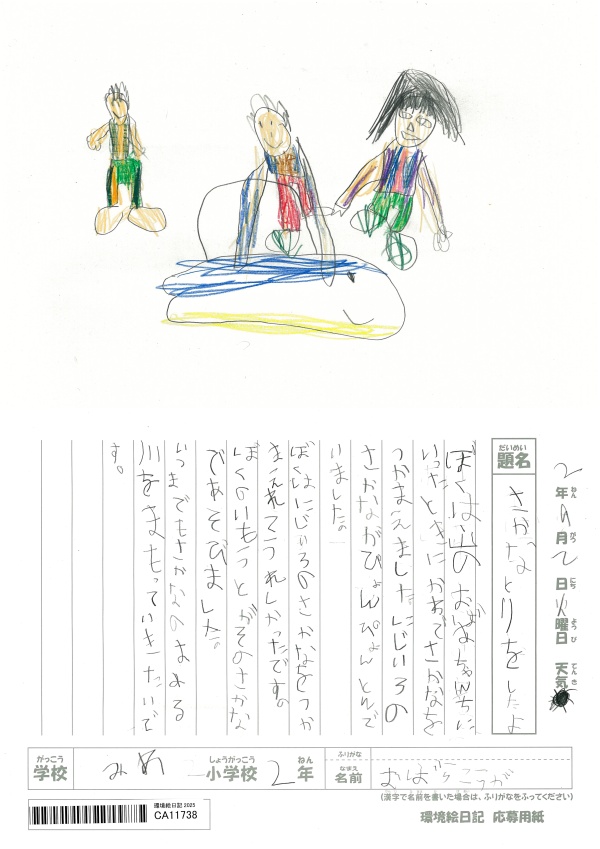 2年9月2日火曜日 天気
ねん がつ にち ようび てんき
だいめい
題名
さかなとりをしたよ
ぼくは山のおばあちゃんちに
いったときにかわでさかなを
つかまえましたにじいろの
さかながぴょんぴょんとんで
いました。
ぼくはにじいろのさかなをつか
まえれてうれしかったです。
ぼくのいもうとがそのさかな
であそびました。
いつまでもさかなのまもる
川をまもっていきたいで
す。
がっこう
学校
しょうがっこう
小学校
2年
ねん
ふりがな
なまえ
名前
(漢字で名前を書いた場合は、ふりがなをふってください)
環境絵日記 2025
CA11738
環境絵日記 応募用紙